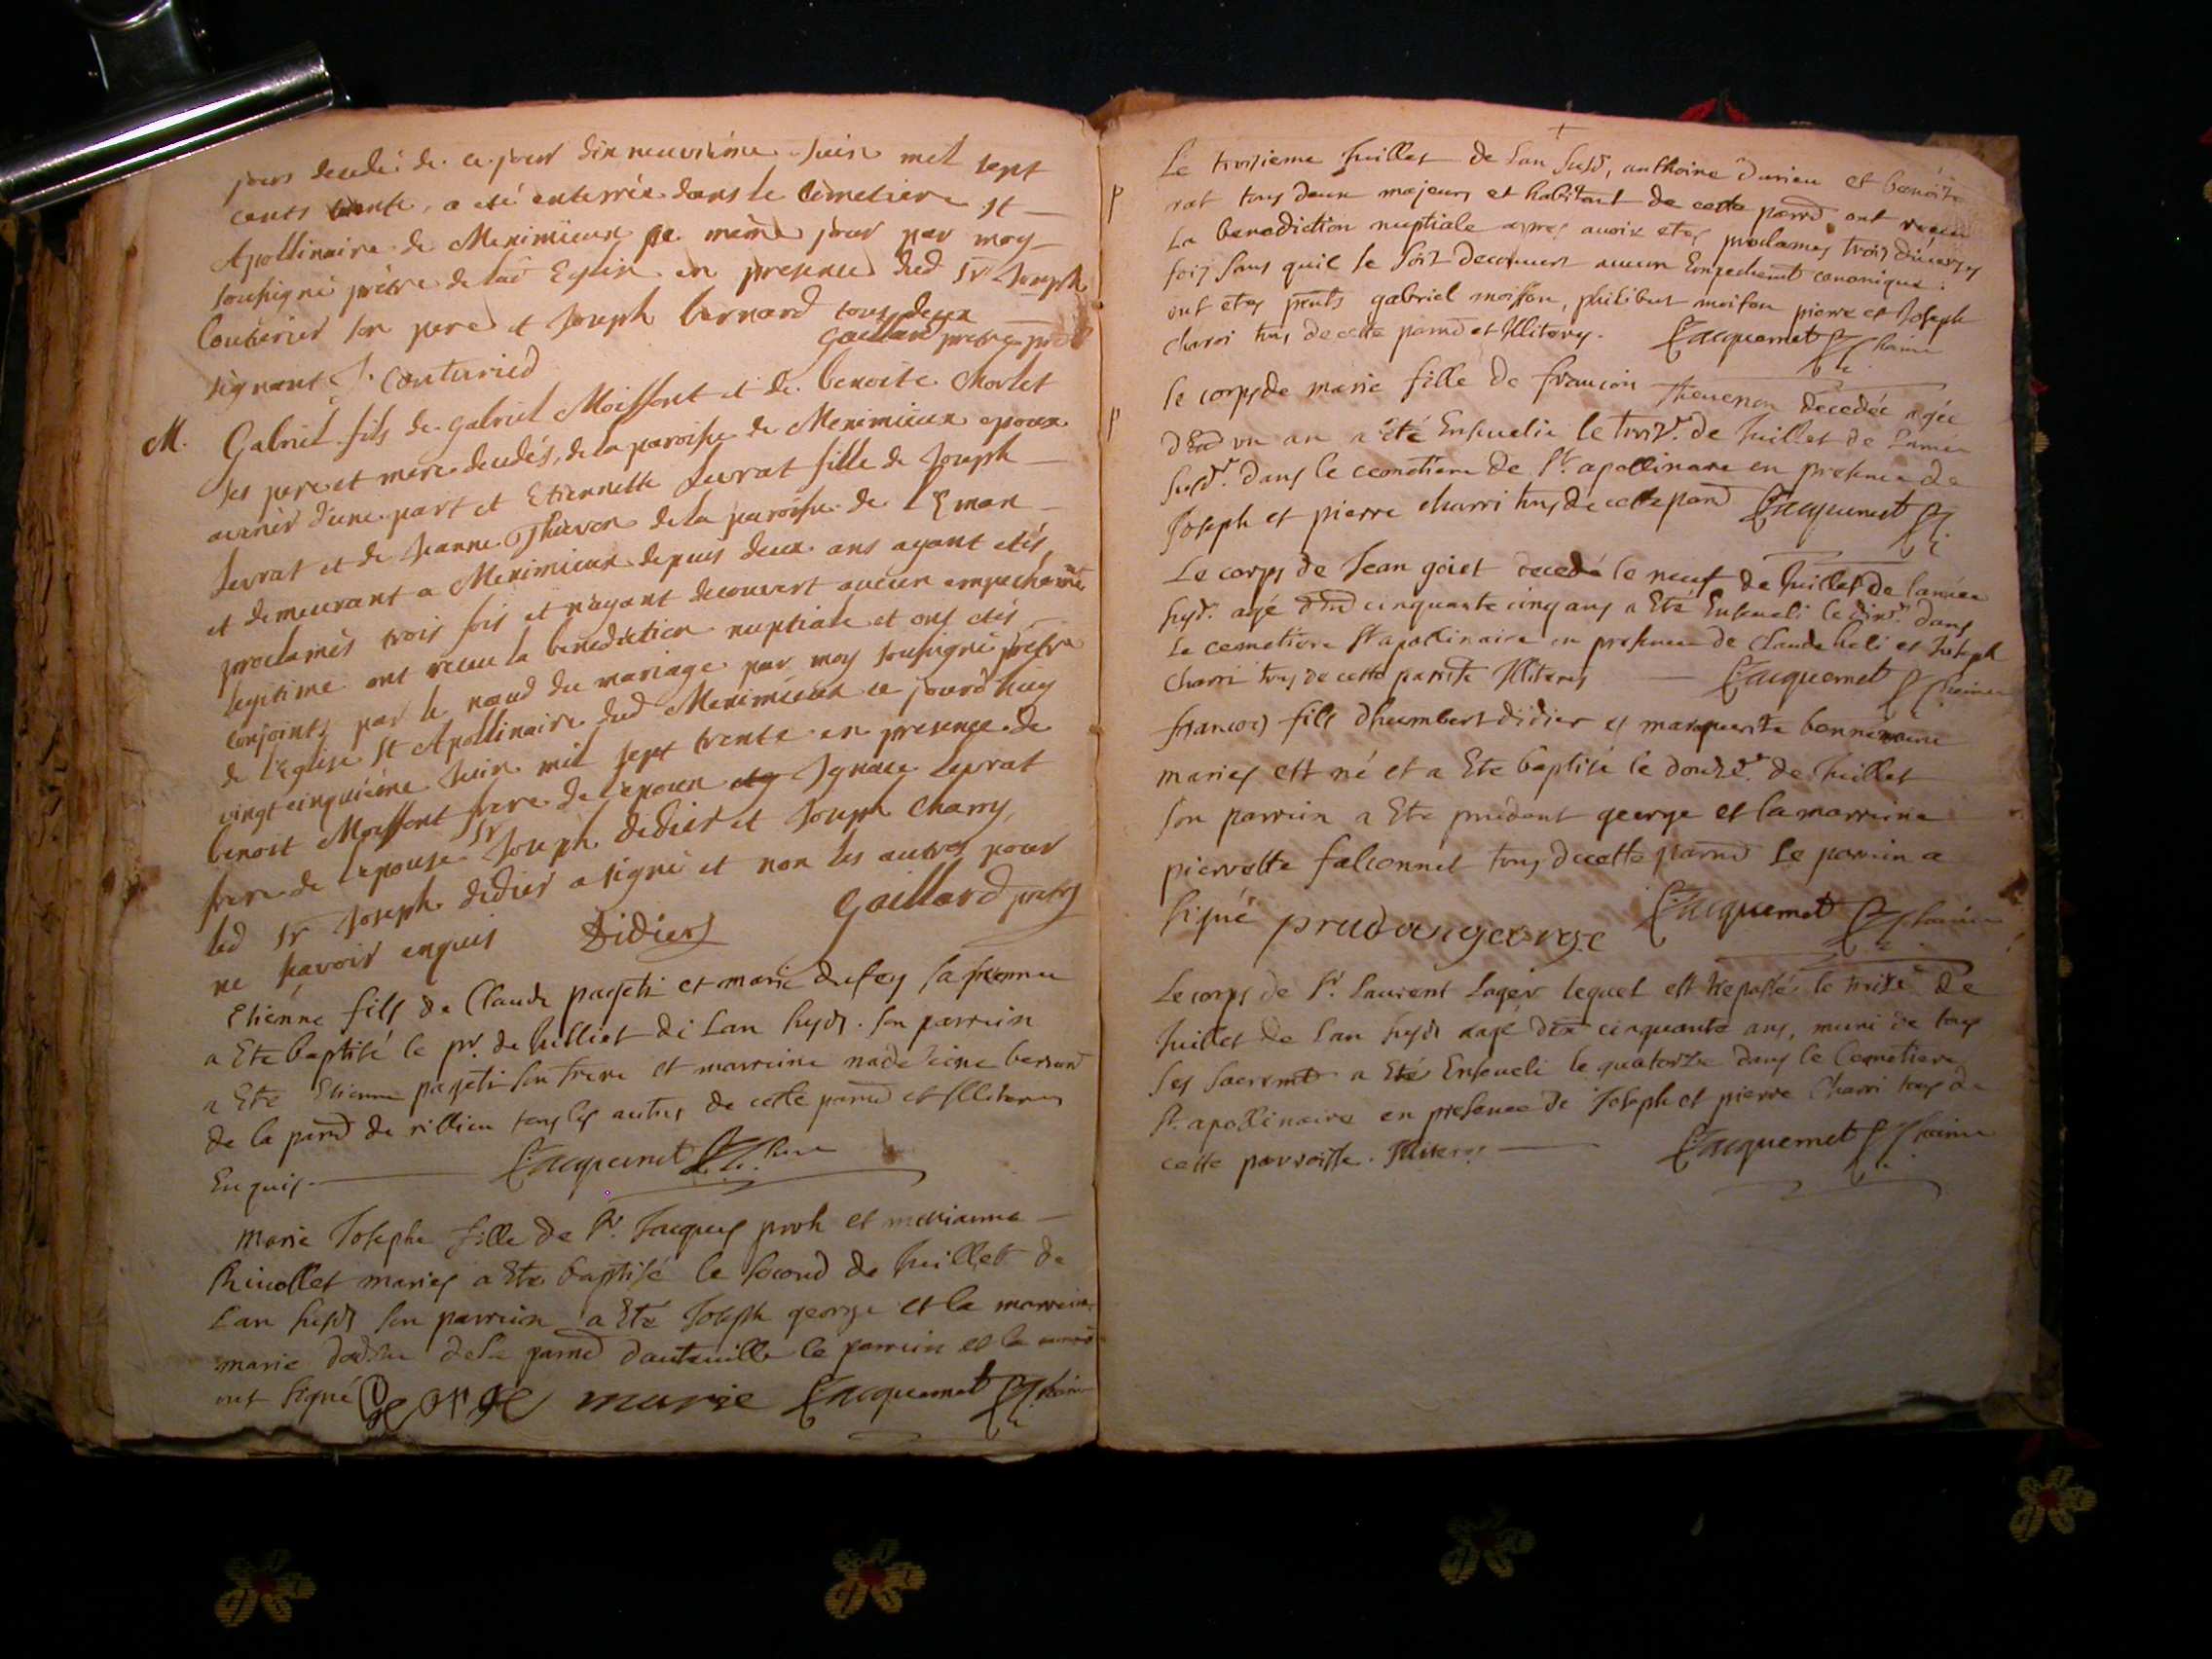 jour decedé de ce jour dix neuvieme Juin mil sept
cents trente, a eté enterrée dans le Cimetiere st
Apollinaire de Meximieux le même jour par moy
soussigné prêtre de lad Eglise en presence dud Sr Joseph
Couturier son pere et Joseph bernard tous deux
signant J. Couturier Gaillard prêtre
M. Gabriel fils de Gabriel Moissont et de benoite Morlet
ses pere et mere decedés, de la paroisse de Meximieux epoux
avenir d'une part et Etiennette Levrat fille de Joseph
Levrat et de Jeanne Thieven de la paroisse de
et demeurant a Meximieux depuis deux ans ayant etés
proclamés trois fois et n'ayant decouvert aucun empechemt
legitime ont receu la benediction nuptiale et ont etés
conjoints par le nœud du mariage par moy soussigné prêtre
de l'Eglise St Apollinaire dud Meximieux ce jourd'huy
vingt cinquiéme Juin mil sept trente en presence de
benoit Moissont frere de l'epoux Ignace Levrat
frere de l'epouse Sr Joseph didier et Joseph Charry,
led Sr Joseph didier a signé et non les autres pour
ne sçavoir enquis Didier Gaillard prêtre
Etienne fils de Claude pageti et marie dufey sa femme
a Eté baptisé le pr. de Julliet de Lan susd. son parrein
a Eté Etienne pageti son frere et marreine madeleine bernard
de la parrd de rillieu tous les autres de cette parrd et Illiteres
Enquis. Jacquemet
Marie Josephe fille de Sr. Jacques proh et marianne
Rivollet mariés a Eté baptisé le second de Juillet de
Lan susd son parrein a Eté Joseph george et la marreine
marie de la parrd le parrein et la
ont signé George marie Jacquemet
Le troisieme Juillet de Lan susd, anthoine durieu et benoite
rat tous deux majeurs et habitant de cette parrd ont reçeu
La benediction nuptiale apres avoir etes proclames trois diverses
fois sans quil se soit decouvert aucun Empechemt canonique:
ont etes pnts gabriel moisson, philibert moison pierre et Joseph
charri tous de cette parrd et Illiteres. Jacquemet
le corps de marie fille de françois Thevenon decedée agée
d'End un an a Eté Ensevelie le trois. de Juillet de L'année
susd. dans le cemetiere de St. apollinaire en presence de
Joseph et pierre charri tous de cette parrd Jacquemet
Le corps de Jean goiet decedé le neuf de Juillet de l'année
susd. agé cinquante cinq ans a Eté Enseveli le dix. dans
Le cemetiere St apollinaire en presence de Claude heli et Joseph
charri tous de cette Illiteres Jacquemet
françois fils d'humbert didier et marguerite bonnemaine
mariés est né et a Eté baptisé le douze. de Juillet
son parrein a Eté prudent george et la marreine
pierrette falconnet tous de cette parrd Le parrein a
signé prudan george Jacquemet
Le corps de Sr. Laurent Lager lequel est trepassé le treize de
Juillet de Lan susd aagé cinquante ans, muni de tous
ses sacremts a Eté Enseveli le quatorze dans le Cemetiere
St. apollinaire en presence de Joseph et pierre Charri tous de
cette parroisse. Illiteres Jacquemet